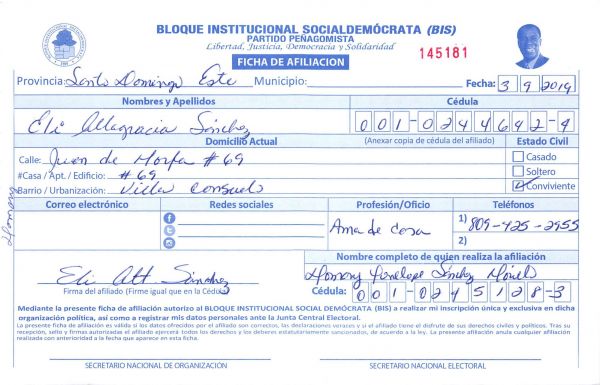 BLOQUE INSTITUCIONAL SOCIALDEMÓCRATA (BIS)
PARTIDO PEÑAGOMISTA
Libertad, Justicia, Democracia y Solidaridad
145181
FICHA DE AFILIACION
Provincia: Santo Domingo Este Municipio: Fecha: 3 9 2019
Nombres y Apellidos Cédula
Eli Altagracia Sánchez 001-0244642-9
(Anexar copia de cédula del afiliado)
Domicilio Actual Estado Civil
Calle: Juan de Morfa # 69 Casado
#Casa / Apt. / Edificio: # 69 Soltero
Barrio / Urbanización: Villa Consuelo Conviviente
Correo electrónico Redes sociales Profesión/Oficio Teléfonos
Ama de Casa 1) 809-425-2955
2)
Nombre completo de quien realiza la afiliación
Eli Alt Sánchez Sánchez
Firma del afiliado (Firme igual que en la Cédula) Cédula: 001-0245128-3
Mediante la presente ficha de afiliación autorizo al BLOQUE INSTITUCIONAL SOCIAL DEMÓCRATA (BIS) a realizar mi inscripción única y exclusiva en dicha
organización política, así como a registrar mis datos personales ante la Junta Central Electoral.
La presente ficha de afiliación es válida si los datos ofrecidos por el afiliado son correctos, las declaraciones veraces y si el afiliado tiene el disfrute de sus derechos civiles y políticos. Tras su
recepción, sello y firmas autorizadas el afiliado ejercerá todos los derechos y los deberes estatutariamente sancionados, de acuerdo a la ley. La presente afiliación anula cualquier afiliación
realizada con anterioridad a la fecha que aparece en esta ficha.
SECRETARIO NACIONAL DE ORGANIZACIÓN SECRETARIO NACIONAL ELECTORAL